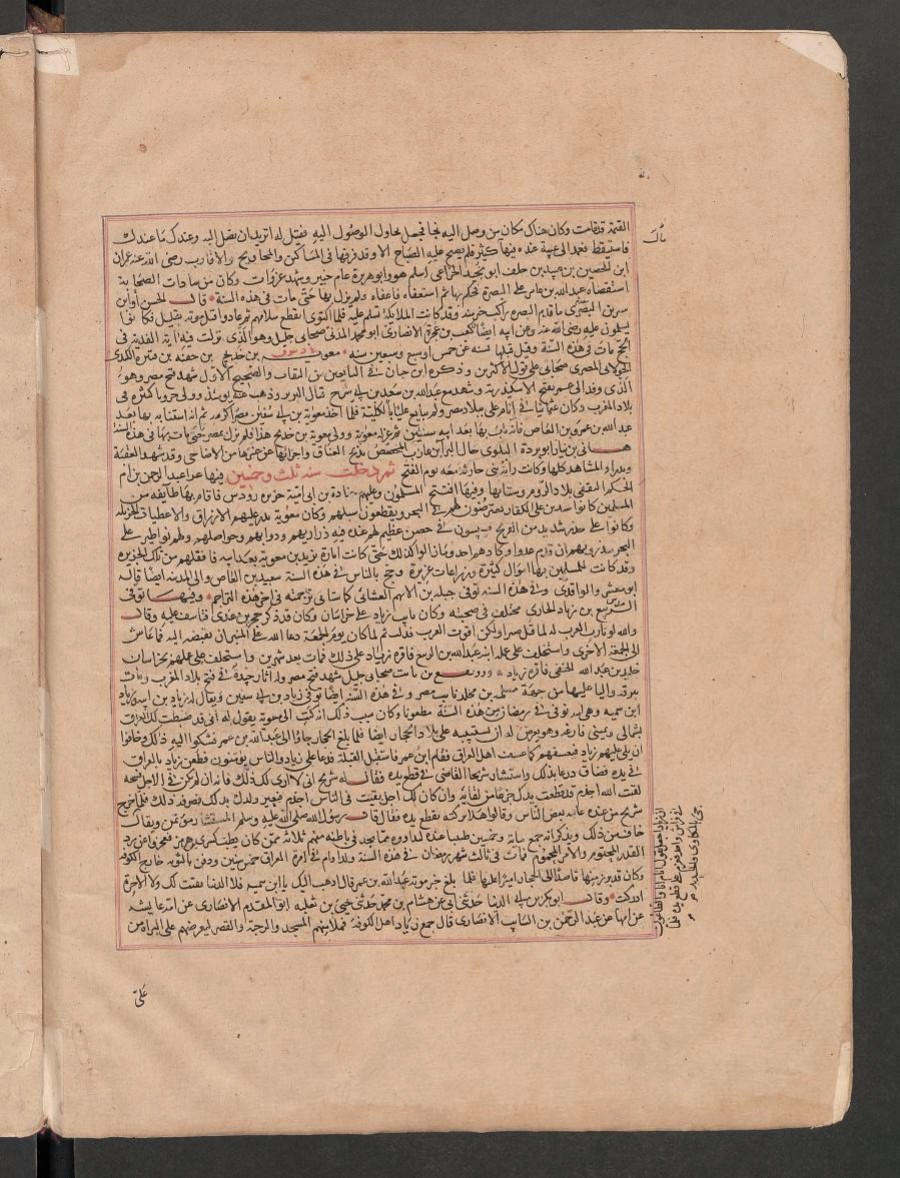 القيمة قد قامت وكان هناك مكان من وصل اليه نجا فجعل يحاول الوصول اليه فقيل له اتريدان تصل اليه وعندك ما عندك
فاستيقظ فعمد الى عيبة عنده فيها كثير فلم يصبح عليه الصباح الا وقد فرقها في المساكين والمحاويج والاقارب رضى الله عنه عمران
ابن الحصين بن عبيد بن خلف ابو نجيد الخزاعى اسلم هو وابو هريرة عام خيبر وشهد غزوات وكان من سادات الصحابة
استقضاه عبد الله بن عامر على البصرة فحكم بها ثم استعفاه فاعفاه ولم يزل بها حتى مات في هذه السنة قال الحسن وابن
سيرين البصرى ما قدم البصرة راكب خير منه وقد كانت الملائكة تسلم عليه فلما اكتوى انقطع سلامهم ثم عادوا قبل موته بقليل فكانوا
يسلمون عليه رضى الله عنه وعن ابيه ايضا كعب بن عجرة الانصارى ابو محمد المدنى صحابى جليل وهو الذى نزلت فيه اية الفدية في
الحج مات في هذه السنة وقيل قبلها بسنة عن خمس او سبع وسبعين سنة معوية بن خديج بن جفنه بن قتيرة الكندى
الخولانى المصرى صحابى على قول الاكثرين وذكره ابن حبان في التابعين من الثقات والصحيح الاول شهد فتح مصر وهو
الذى وفد الى عمر بفتح الاسكندرية وشهد مع عبد الله بن سعد بن ابي سرح قتال البربر وذهبت عينه يومئذ وولى حروبا كثيرة في
بلاد المغرب وكان عثمانيا في ايام على ببلاد مصر ولم يبايع عليا بالكلية فلما اخذ معوية بن ابي سفين مصر اكرمه ثم انه استنابه بها بعد
عبد الله بن عمرو بن العاص فانه ناب بها بعد ابيه سنتين ثم عزله معوية وولى معوية بن خديج هذا فلم يزل بمصر حتى مات بها في هذه السنة
هانى بن نيار ابو بردة البلوى خال البرا بن عازب المخصص بذبح العناق واجزائها عن غيرها من الاضاحى وقد شهد العقبة
وبدرا والمشاهد كلها وكانت راية بنى حارثة معه يوم الفتح ثم دخلت سنة ثلث وخمسين ففيها غزا عبد الرحمن بن ام
الحكم الثقفى بلاد الروم وشتا بها وفيها افتتح المسلمون وعليهم جنادة بن ابى امية جزيرة رودس فاقام بها طايفة من
المسلمين كانوا اشد شى على الكفار يعترضون لهم في البحر ويقطعون سبيلهم وكان معوية يدر عليهم الارزاق والاعطيات الجزيلة
وكانوا على حذر شديد من الفرنج يبيتون في حصن عظيم لهم عنده فيه ذراريهم ودوابهم وحواصلهم ولهم نواطير على
البحر ينذرونهم ان قدم عدو او كادهم احد وما زالوا كذلك حتى كانت امارة يزيد بن معوية بعد ابيه فاقفلهم من تلك الجزيرة
وقد كانت للمسلمين بها اموال كثيرة وزراعات غزيرة وحج بالناس في هذه السنة سعيد بن العاص والى المدينة ايضا قاله
ابو معشر والواقدى وفي هذه السنة توفى جبلة بن الايهم الغسانى كما ستاتى ترجمته في اخر هذه التراجم وفيها توفى
الربيع بن زياد الحارثى مختلف في صحبته وكان نايب زياد على خراسان وكان قد ذكر حجر بن عدى فتاسف عليه وقال
والله لو ثارت العرب له لما قتل صبرا ولكن اقرت العرب فذلت ثم لما كان يوم الجمعة دعا الله على المنبر ان يقبضه اليه فما عاش
الى الجمعة الاخرى واستخلف على عمله ابنه عبد الله بن الربيع فاقره زياد على ذلك فمات بعد شهرين واستخلف على عملهم بخراسان
خليد بن عبد الله الحنفى فاقره زياد ورويفع بن ثابت صحابى جليل شهد فتح مصر وله اثار جيدة في فتح بلاد المغرب ومات
ببرقة واليا عليها من جهة مسلمة بن مخلد نايب مصر وفي هذه السنة ايضا توفى زياد بن ابي سفين ويقال له زياد بن ابيه وزياد
ابن سمية وهى امه توفى في رمضان من هذه السنة مطعونا وكان سبب ذلك انه كتب الى معوية يقول له انى قد ضبطت لك العراق
بشمالى ويمينى فارغة وهو يعرض له ان يستنيبه على بلاد الحجاز ايضا فلما بلغ اهل الحجاز جاؤا الى عبد الله بن عمر فشكوا اليه ذلك وخافوا
ان يلى عليهم زياد فيعسفهم كما عسف اهل العراق فقام ابن عمر فاستقبل القبلة فدعا على زياد والناس يؤمنون فطعن زياد بالعراق
في يده فضاق ذرعا بذلك واستشار شريحا القاضى في قطع يده فقال له شريح انى لا ارى لك ذلك فانه ان لم يكن في الاجل فسحة
لقيت الله اجذم قد قطعت يدك خوفا من لقائه وان كان لك اجل بقيت في الناس اجذم فيعير ولدك بذلك فصرفه ذلك فلما خرج
شريح من عنده عاتبه بعض الناس وقالوا هلا تركته فقطع يده فقال قال رسول الله صلى الله عليه وسلم المستشار مؤتمن ويقال
خاف من ذلك ويذكر انه جمع ماية وخمسين طبيبا عنده ليداووه مما يجد في باطنه منهم ثلاثة ممن كان يطب كسرى بن هرمز فعجزوا عن رد
القدر المحتوم والامر المحموم فمات في ثالث شهر رمضان في هذه السنة وقد اقام في امرة العراق خمس سنين ودفن بالثوية خارج الكوفة
وكان قد برز منها قاصدا الى الحجاز اميرا عليها فلما بلغ خبر موته عبد الله بن عمر قال اذهب اليك يا ابن سمية فلا الدنيا بقيت لك ولا الاخرة
ادركت وقال ابو بكر بن ابي الدنيا حدثنى ابى عن هشام بن محمد حدثنى يحيى بن ثعلبه ابو المقدم الانصارى عن امه عايشة
عن ابيها عن عبد الرحمن بن السايب الانصارى قال جمع زياد اهل الكوفة فملا منهم المسجد والرحبة والقصر ليعرضهم على البراة من
على